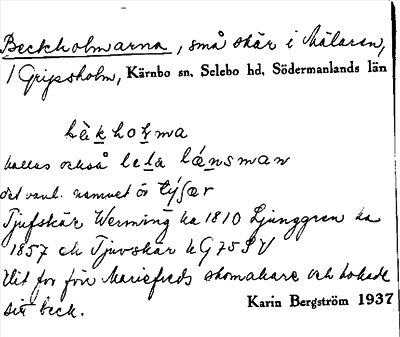 Beckholmarna, små skär i Mälaren,
/ Gripsholm, Kärnbo sn, Selebo hd, Södermanlands län
bèkhoḷma
kallas också leta lánsman
det vanl. namnet är týʃær
Tjufskär Werming ka 1810 Ljunggren ka
1857 och Tjuvskär hG75SV
Dit for förr Mariefreds skomakare och kokade
sitt beck.
Karin Bergström 1937